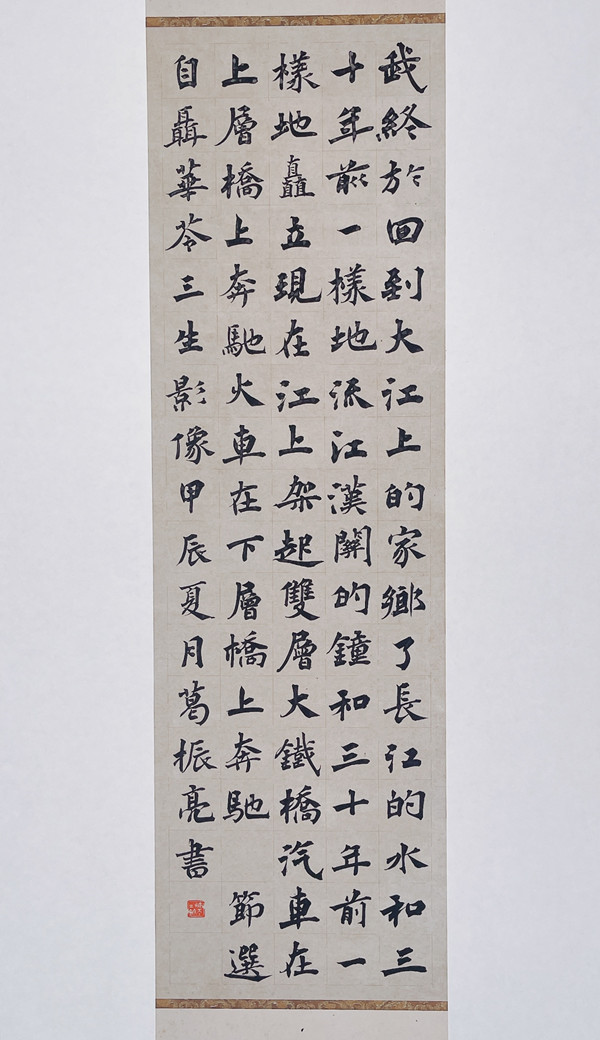 我終於回到大江上的家鄉了長江的水和三
十年前一樣地流江漢關的鐘和三十年前一
樣地矗立現在江上架起雙層大鐵橋汽車在
上層橋上奔馳火車在下層橋上奔馳 節選
自聶華苓三生影像甲辰夏月葛振亮書